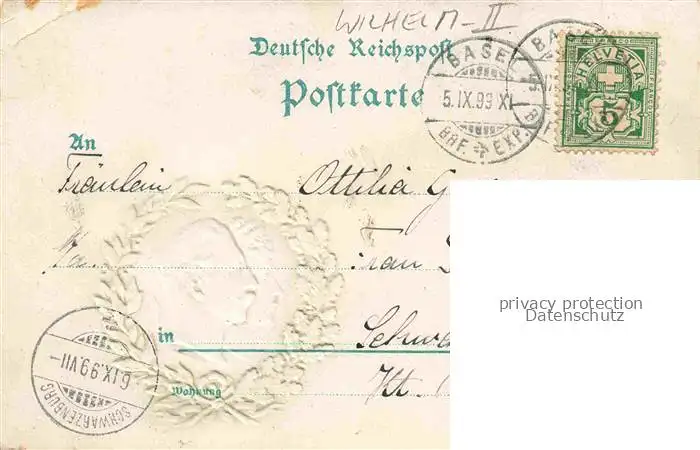 WILHELM-II
Deutsche Reichspost
Postkarte
BASEL
5.IX.99 XI
BRF. EXP.
BASEL
HELVETIA
5
An
Fräulein Ottilia
Frau
in Schw
Kt.
Wohnung
SCHWARZENBURG
6.IX.99.VII
privacy protection
Datenschutz